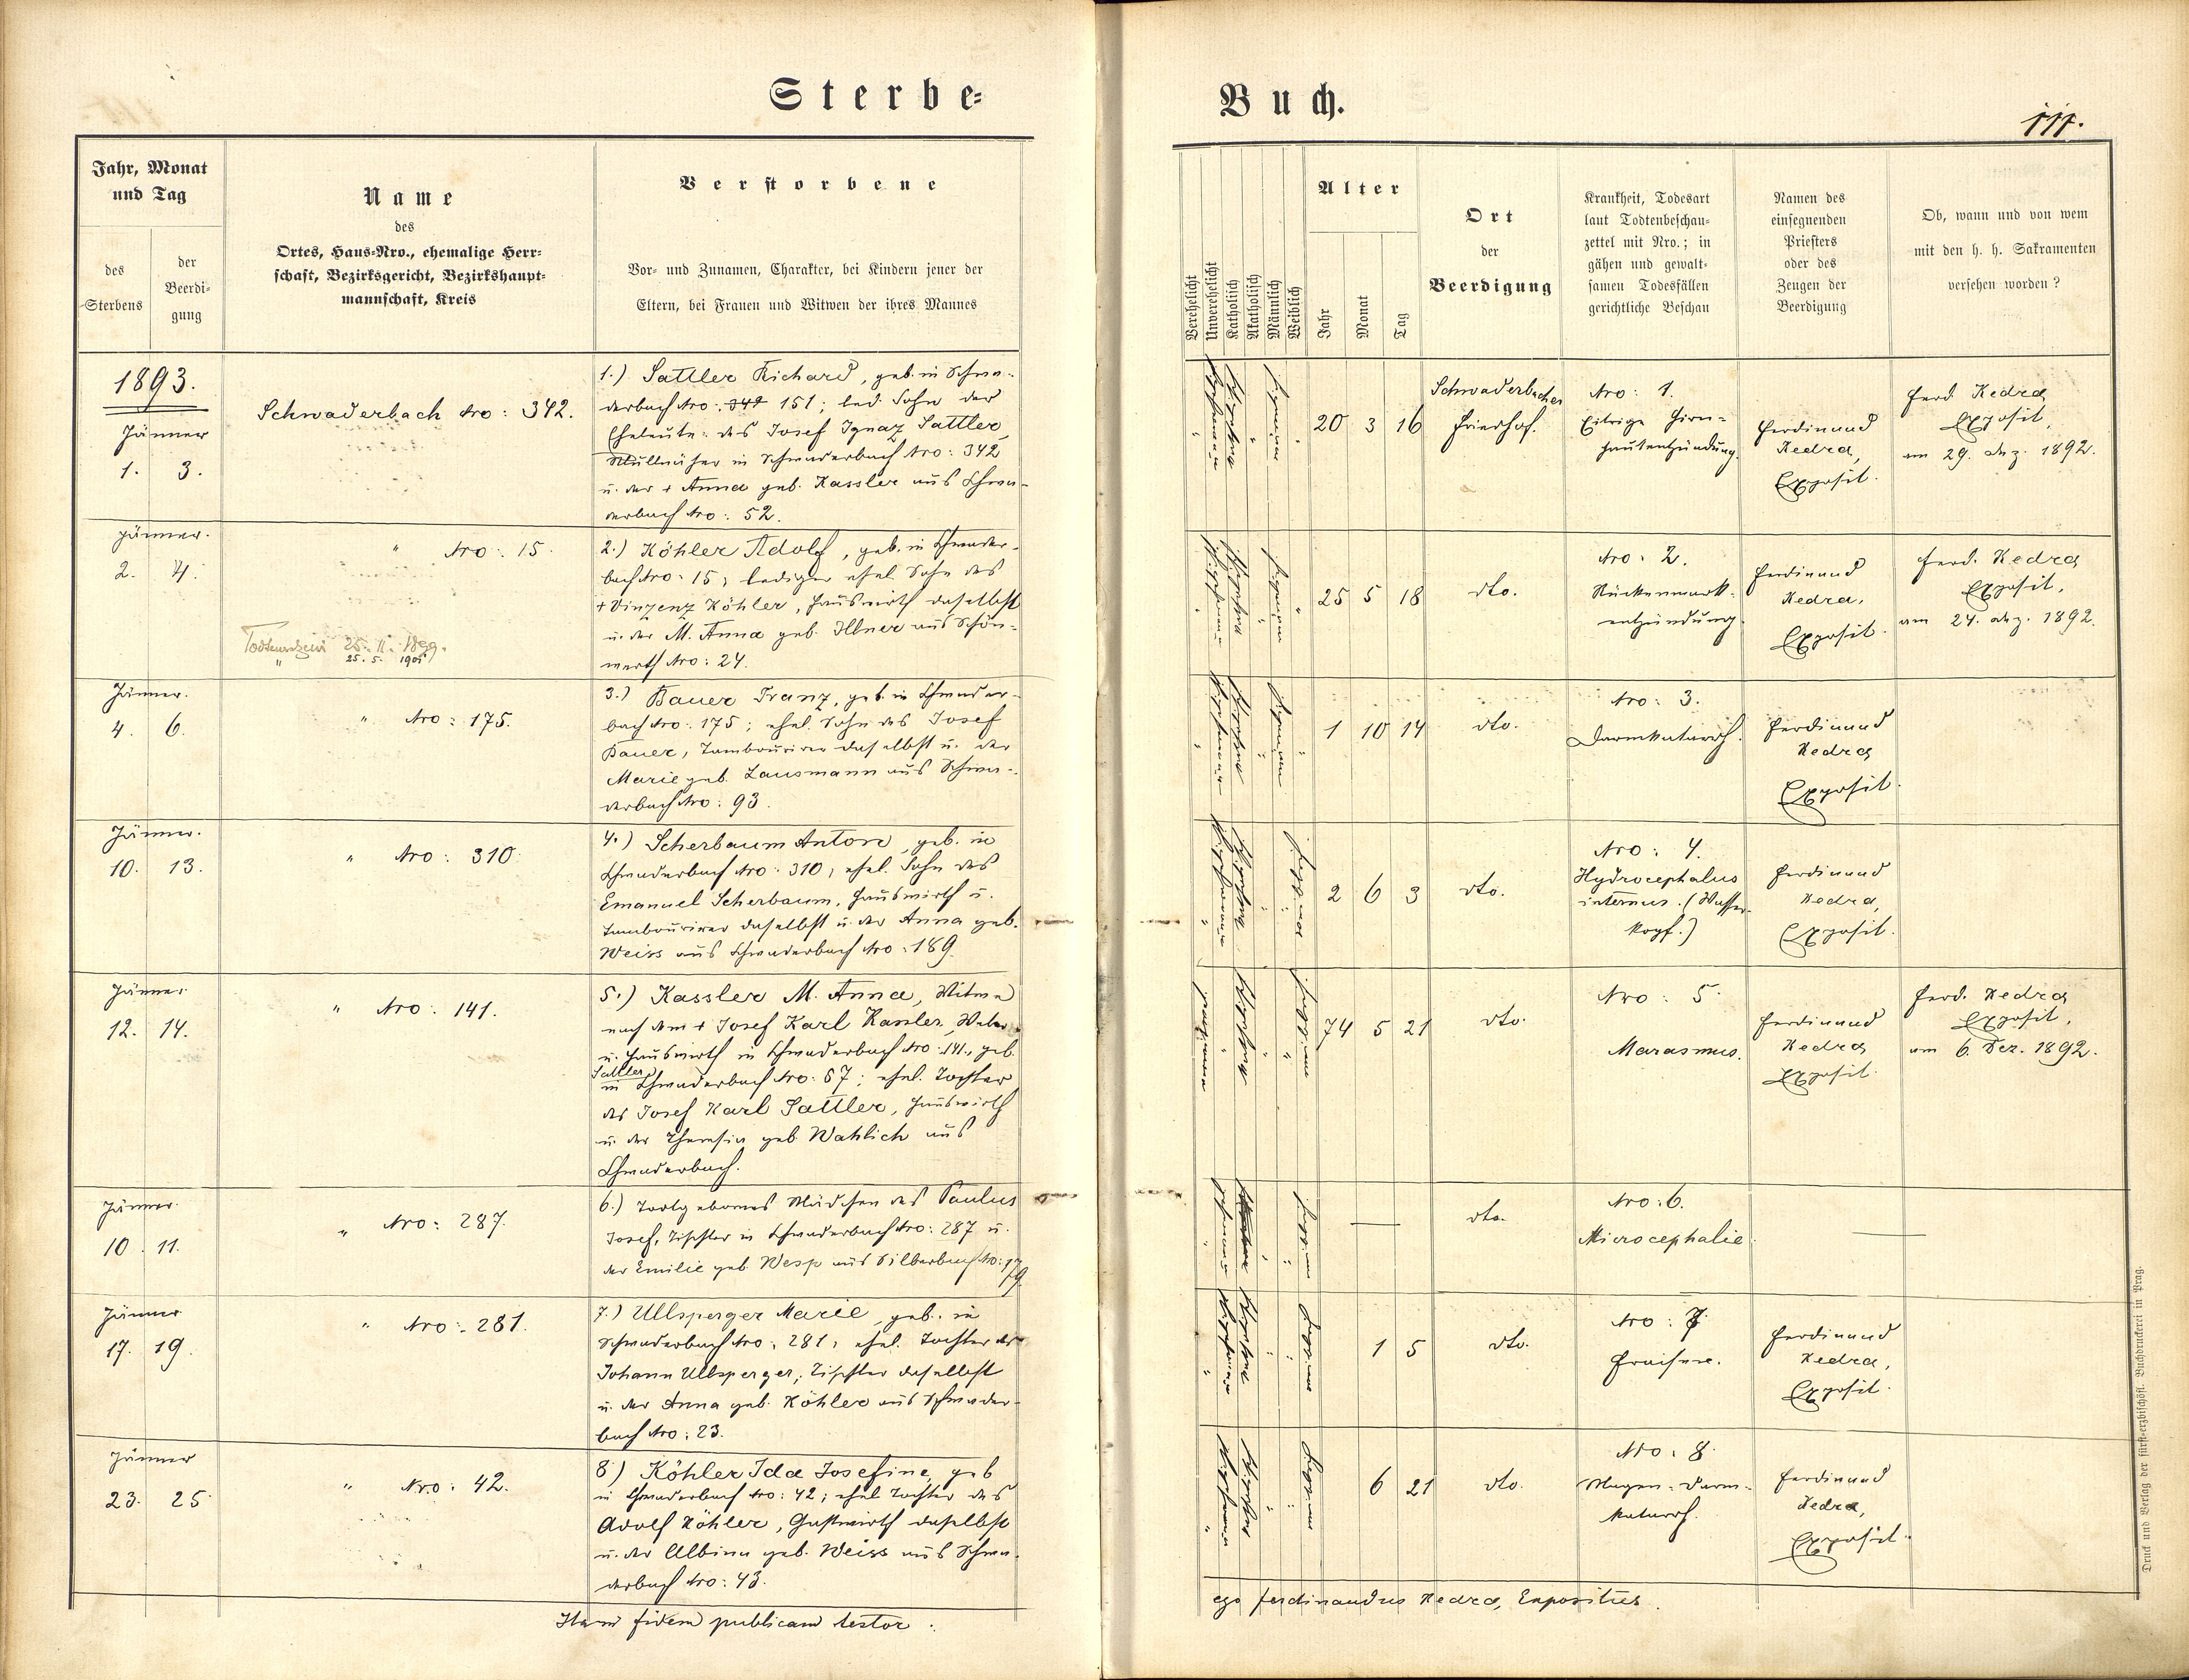 Sterbe=
Jahr, Monat
und Tag
des
Sterbens
der
Beerdi=
gung
Name
des
Ortes, Haus=Nro., ehemalige Herr=
schaft, Bezirksgericht, Bezirkshaupt=
mannschaft, Kreis
Verstorbene
Vor= und Zunamen, Charakter, bei Kindern jener der
Eltern, bei Frauen und Witwen der ihres Mannes
1893.
Jänner
1. 3.
Schwaderbach Nro: 342.
1.) Sattler Richard, geb. in Schwa-
derbach Nro: 151; led. Sohn der
Eheleute: des Josef Ignaz Sattler,
in Schwaderbach Nro: 342
u. der + Anna geb. Kassler aus Schwa-
derbach Nro: 52.
Jänner.
2. 4.
" Nro: 15.
Todtenschein 25. II. 1899.
" 25. 5. 1905
2.) Köhler Adolf, geb. in Schwader-
bach Nro: 15; lediger ehel. Sohn des
+ Vinzenz Köhler, Hauswirth daselbst
u. der M. Anna geb. Illner aus Schön-
werth Nro: 24.
Jänner.
4. 6.
" Nro: 175.
3.) Bauer Franz, geb. in Schwader-
bach Nro: 175; ehel. Sohn des Josef
Bauer, Tambourirer daselbst u. der
Marie geb. Lausmann aus Schwa-
derbach Nro: 93.
Jänner.
10. 13.
" Nro: 310.
4.) Scherbaum Anton, geb. in
Schwaderbach Nro: 310, ehel. Sohn des
Emanuel Scherbaum, Hauswirth u.
Tambourirer daselbst u. der Anna geb.
Weiss aus Schwaderbach Nro: 189.
Jänner
12. 14.
" Nro: 141.
5.) Kassler M. Anna, Witwe
nach dem + Josef Karl Kassler, Weber
u. Hauswirth in Schwaderbach Nro: 141., geb.
Sattler
in Schwaderbach Nro: 67; ehel. Tochter
des Josef Karl Sattler, Hauswirth
u. der Theresia geb. Wahlich aus
Schwaderbach.
Jänner.
10. 11.
" Nro: 287.
6.) Todtgebornes Mädchen des Paulus
Josef, Tischler in Schwaderbach Nro: 287 u.
der Emilie geb. Wesp aus Silberbach Nro: 179.
Jänner
17. 19.
" Nro: 281.
7.) Ullsperger Marie, geb. in
Schwaderbach Nro: 281, ehel. Tochter des
Johann Ullsperger, Tischler daselbst
u. der Anna geb. Köhler aus Schwader-
bach Nro: 23.
Jänner
23. 25.
" Nro: 42.
8.) Köhler Ida Josefine, geb.
in Schwaderbach Nro: 42; ehel. Tochter des
Adolf Köhler, Gastwirth daselbst
u. der Albina geb. Weiss aus Schwa-
derbach Nro: 43.
fidem publicam testor.
Buch.
111.
Verehelicht
Unverehelicht
Katholisch
Akatholisch
Männlich
Weiblich
Alter
Jahr
Monat
Tag
Ort
der
Beerdigung
Krankheit, Todesart
laut Todtenbeschau=
zettel mit Nro.; in
gähen und gewalt=
samen Todesfällen
gerichtliche Beschau
Namen des
einsegnenden
Priesters
oder des
Zeugen der
Beerdigung
Ob, wann und von wem
mit den h. h. Sakramenten
versehen worden?
20 3 16
Schwaderbacher
Friedhof.
Nro: 1.
Eitrige Hirn=
hautentzündung.
Ferdinand
Kedra,
Exposit.
Ferd. Kedra
Exposit,
am 29. Dez. 1892.
25 5 18
dto.
Nro: 2.
Rückenmark-
entzündung.
Ferdinand
Kedra,
Exposit.
Ferd. Kedra
Exposit,
am 24. Dez. 1892.
1 10 14
dto.
Nro: 3.
Darmkatarrh.
Ferdinand
Kedra
Exposit.
2 6 3
dto.
Nro: 4.
Hydrocephalus
internus. (Wasser-
kopf.)
Ferdinand
Kedra,
Exposit.
74 5 21
dto.
Nro: 5.
Marasmus.
Ferdinand
Kedra
Exposit.
Ferd. Kedra
Exposit,
am 6. Dez. 1892.
—
dto.
Nro: 6.
Microcephalie.
—
1 5
dto.
Nro: 7.
Fraisen.
Ferdinand
Kedra,
Exposit.
6 21
dto.
Nro: 8.
Magen-Darm-
katarrh.
Ferdinand
Kedra,
Exposit.
ego Ferdinandus Kedra, Expositus.
Druck und Verlag der fürst=erzbischöfl. Buchdruckerei in Prag.